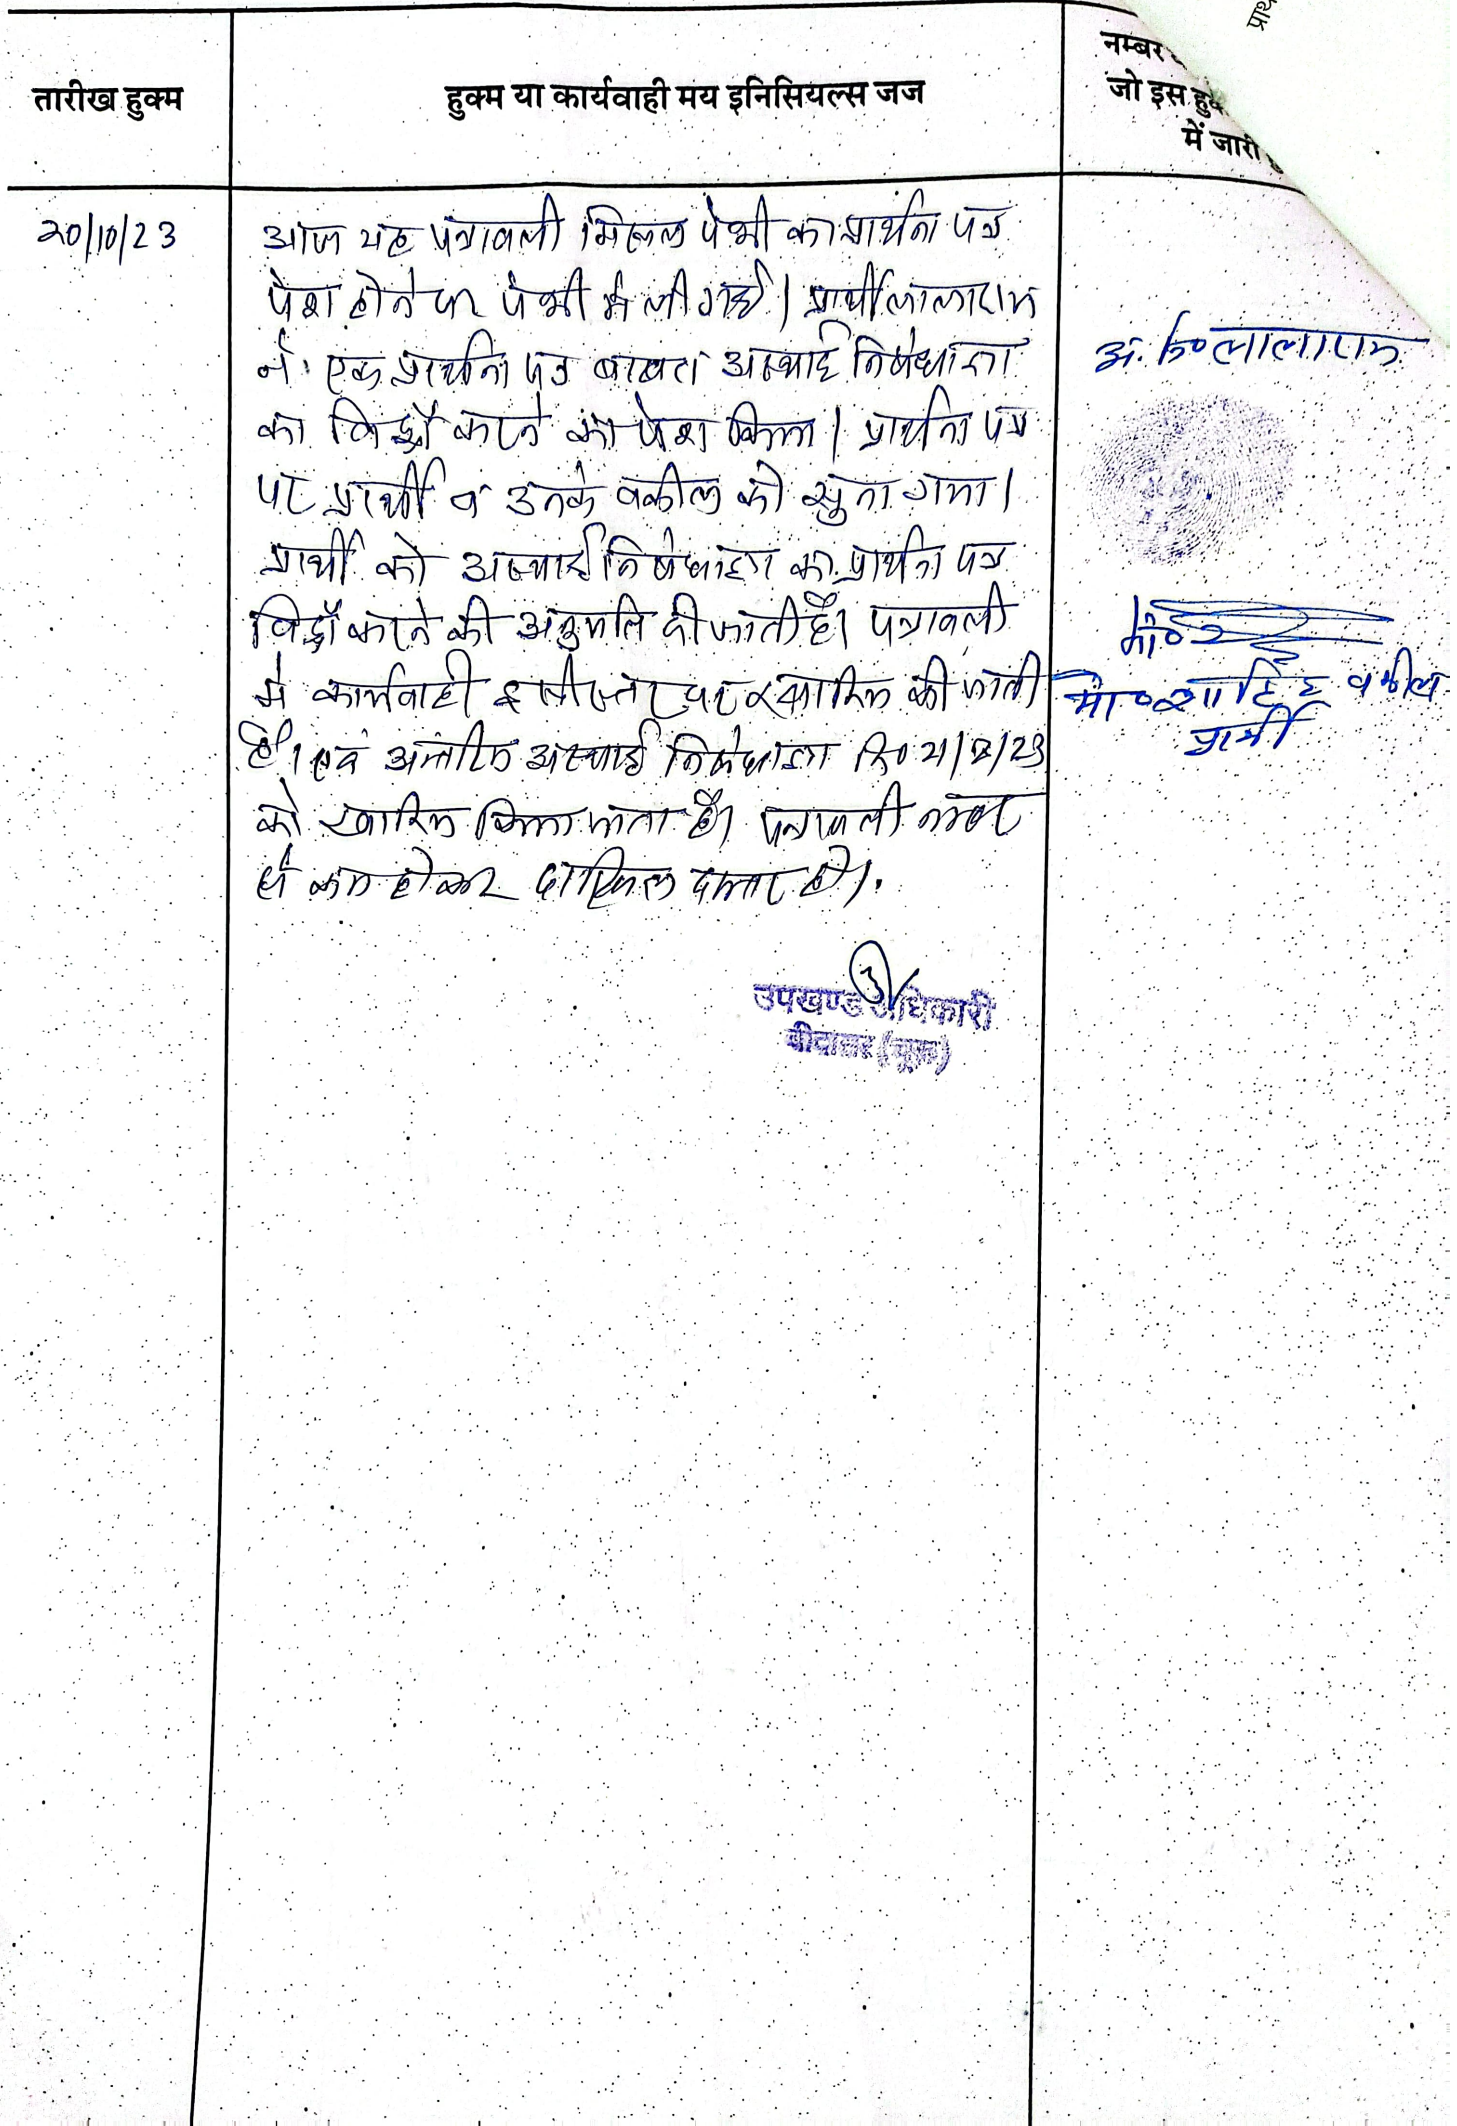 प्रार्थ
नम्बर
तारीख हुक्म
हुक्म या कार्यवाही मय इनिसियल्स जज
जो इस हुक
में जारी
20/10/23
आज यह पत्रावली मिसल पेशी का प्रार्थना पत्र
पेश होने पर पेशी में ली गई। प्रार्थी लालाराम
ने एक प्रार्थना पत्र बाबत अस्थाई निषेधाज्ञा
का विड्रॉ करने का पेश किया। प्रार्थना पत्र
पर प्रार्थी व उनके वकील को सुना गया।
प्रार्थी को अस्थाई निषेधाज्ञा का प्रार्थना पत्र
विड्रॉ करने की अनुमति दी जाती है। पत्रावली
में कार्यवाही इसी स्तर पर खारिज की जाती
है। एवं अन्तरिम अस्थाई निषेधाज्ञा दि०
को खारिज किया जाता है। पत्रावली नम्बर
से कम होकर दाखिल दफ्तर हो।
अ. नि० लालाराम
मो० वकील
प्रार्थी
उपखण्ड अधिकारी
बीदासर (चूरू)